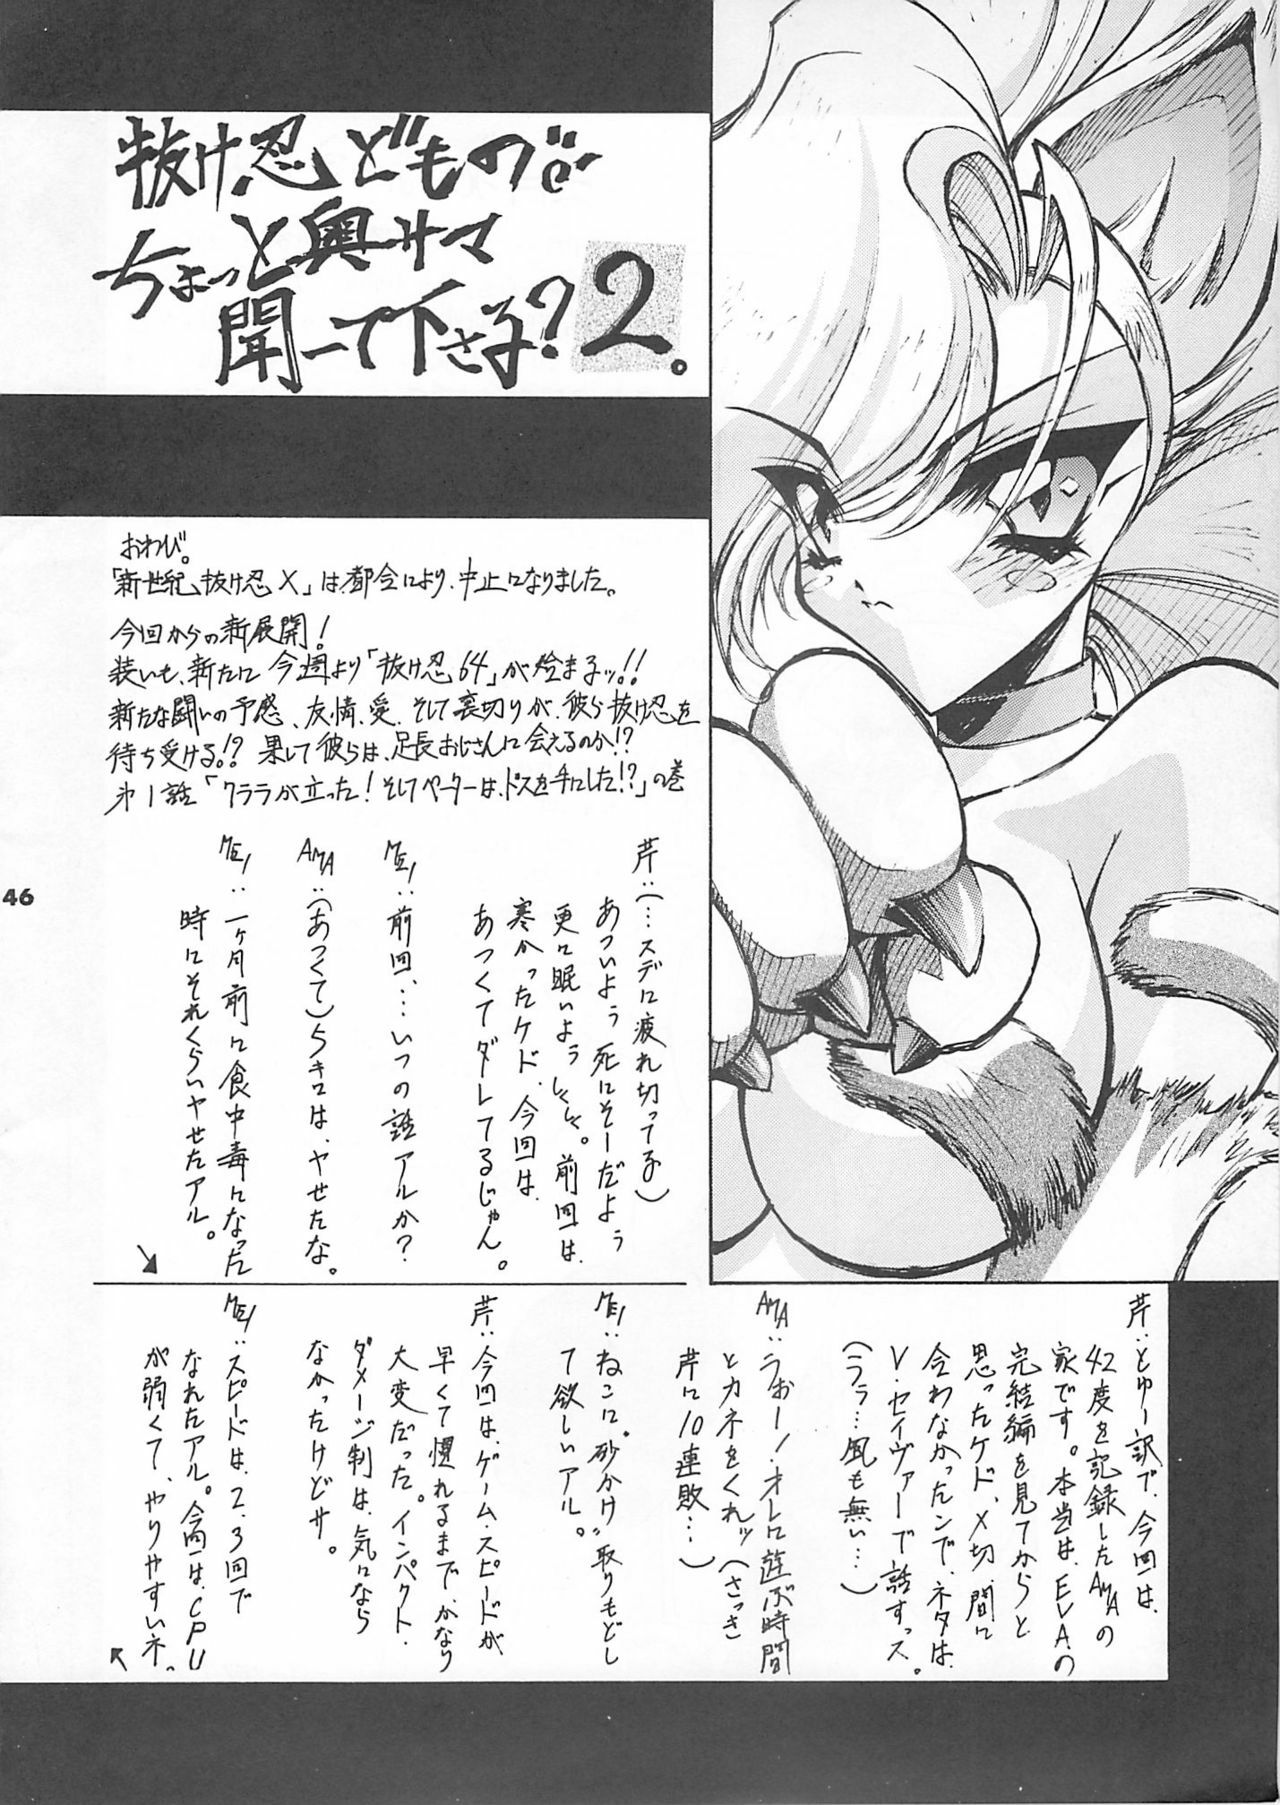 抜け忍どもの
ちょっと奥サマ
聞ーて下さる?2。
おわび。
「新世紀抜け忍X」は都合により、中止になりました。
今回からの新展開!
装いも、新たに今週より「抜け忍64」が始まるッ!!
新たな闘いの予感、友情、愛、そして裏切りが、彼ら抜け忍を
待ち受ける。!?果して彼らは、足長おじさんに会えるのか!?
第1話「クララが立った!そしてペーターは、ドスを手にした!?」の巻
芹:(…スデに疲れ切ってる)
あついよう死にそーだよう
更に眠いようしくしく。前回は、
寒かったケド、今回は、
あつくてダレてるじゃん。
MEI:前回、…いつの話アルか?
AMA:(あつくて)5キロは、ヤせたな。
MEI:一ヶ月前に食中毒になった
時にそれくらいヤせたアル。
46
芹:とゆー訳で、今回は、
42度を記録したAMAの
家です。本当は、EVAの
完結編を見てからと
思ったケド、〆切、間に
合わなかったンで、ネタは、
V・セイヴァーで話すっス。
(ララ…風も無い…)
AMA:うおー!オレに遊ぶ時間
とカネをくれッ(さっき
芹に10連敗…)
MEI:ねこに。砂かけ〟取りもどし
て欲しいアル。
芹:今回は、ゲーム・スピードが
早くて慣れるまで、かなり
大変だった。インパクト・
ダメージ制は、気になら
なかったけどサ。
MEI:スピードは、2、3回で
なれたアル。今回は、CPU
が弱くて、やりやすいネ。